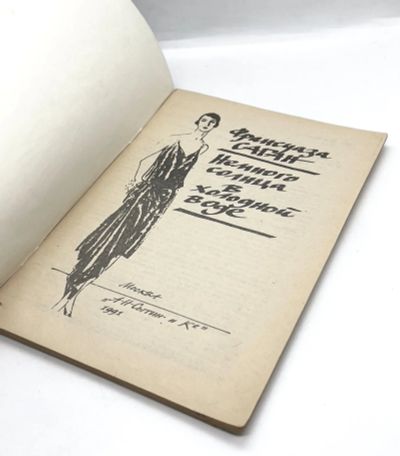 Франсуаза
САГАН
Немного
солнца
в
холодной
воде
Москва
"А.Н.Сытин и К°"
1991